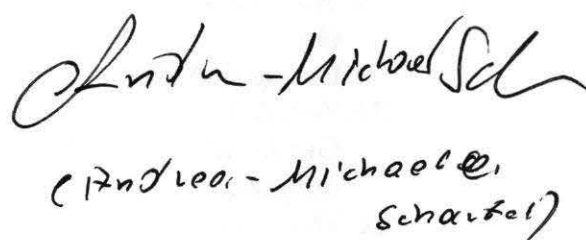 Andrea-Michael Sch
(Andrea-Michaela
Schartel)